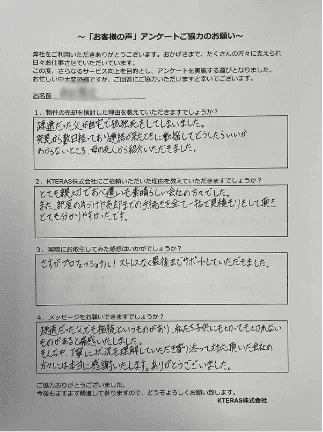 ～「お客様の声」アンケートご協力のお願い～
弊社をご利用いただきありがとうございます。おかげさまで、たくさんの方々に支えられ
日々お仕事させていただいています。
この度、さらなるサービス向上を目的とし、アンケートを実施する運びとなりました。
お忙しい中大変恐縮ですが、ご回答にご協力いただけますと幸いでございます。
お名前
1．物件の売却を検討した理由を教えていただきますでしょうか？
疎遠だった父が自宅で孤独死をしてしまいました。
突然から数日経っており連絡が来たときに動揺してどうしたらいいか
わからないところ、母の友人から紹介いただきました。
2．KTERAS株式会社にご依頼いただいた理由を教えていただけますでしょうか？
とても親切で心遣いも素晴らしい会社の方々でした。
また、部屋の片づけや売却までの手続きを全て一括で見積もりをして頂き
とても分かりやすかったです。
3．実際にお取引してみた感想はいかがでしょうか？
さすがプロフェッショナル！ストレスなく最後までサポートしていただきました。
4．メッセージをお願いできますでしょうか？
疎遠だった父でも相続というものがあり、私たち子供にも切っても切れない
ものがあると痛感いたしました。
そんな中、丁寧に状況を理解していただき寄り添って対応頂いた会社の
方々には本当に感謝いたします。ありがとうございました。
ご協力ありがとうございました。
今後もますます精進して参りますので、どうぞよろしくお願い致します。
KTERAS株式会社